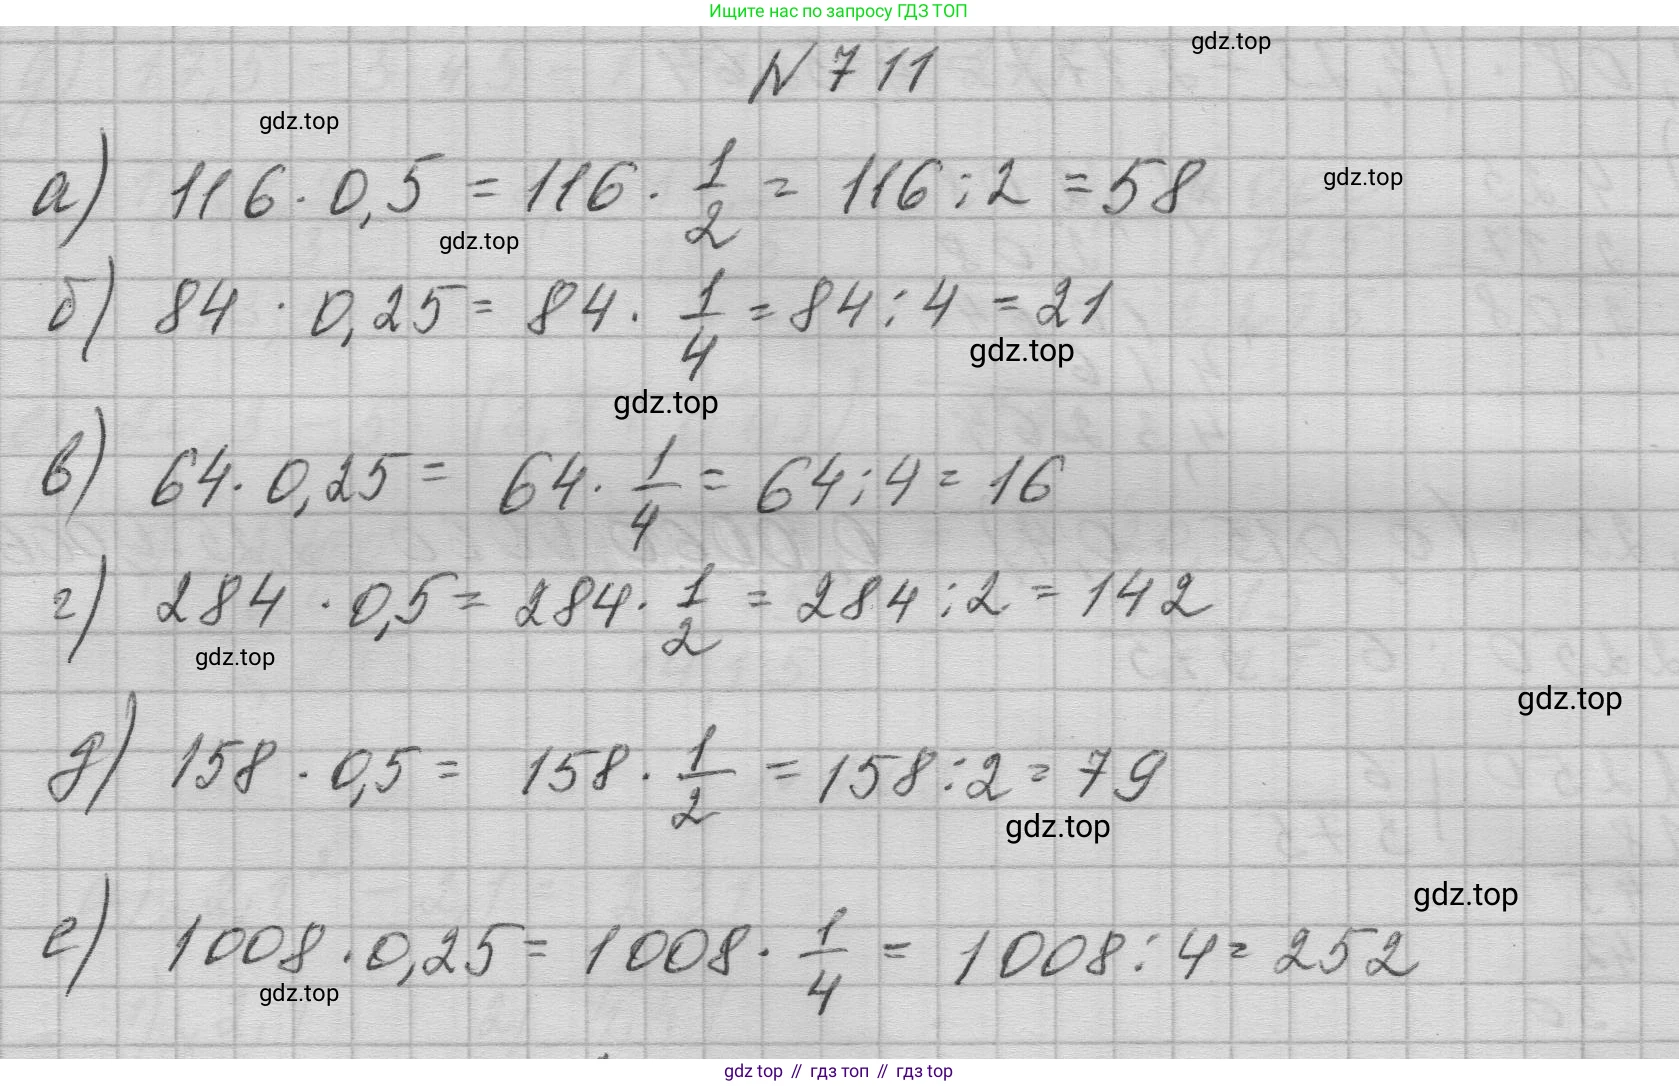 Ищите нас по запросу ГДЗ ТОП
gdz.top
N 711
gdz.top
а) 116 · 0,5 = 116 · 1/2 = 116 : 2 = 58
gdz.top
gdz.top
б) 84 · 0,25 = 84 · 1/4 = 84 : 4 = 21
gdz.top
gdz.top
в) 64 · 0,25 = 64 · 1/4 = 64 : 4 = 16
г) 284 · 0,5 = 284 · 1/2 = 284 : 2 = 142
gdz.top
gdz.top
д) 158 · 0,5 = 158 · 1/2 = 158 : 2 = 79
gdz.top
gdz.top
е) 1008 · 0,25 = 1008 · 1/4 = 1008 : 4 = 252
gdz.top
gdz top // гдз топ // гдз top